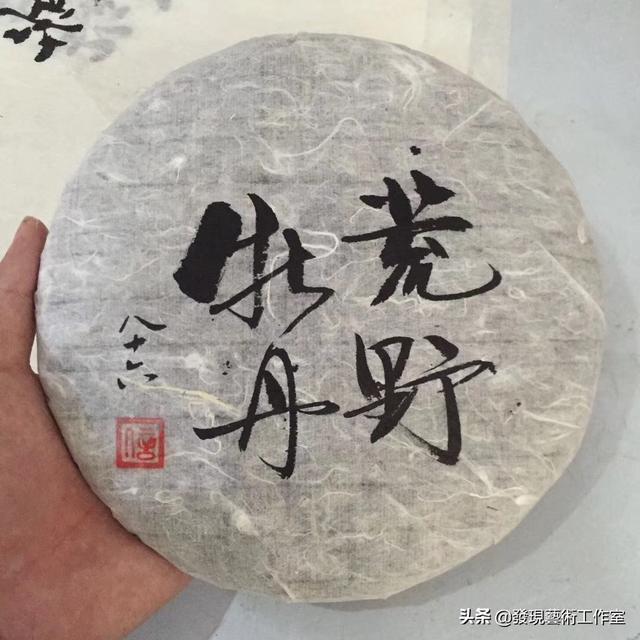 荒野
牡丹
八十六
头条 @發現藝術工作室